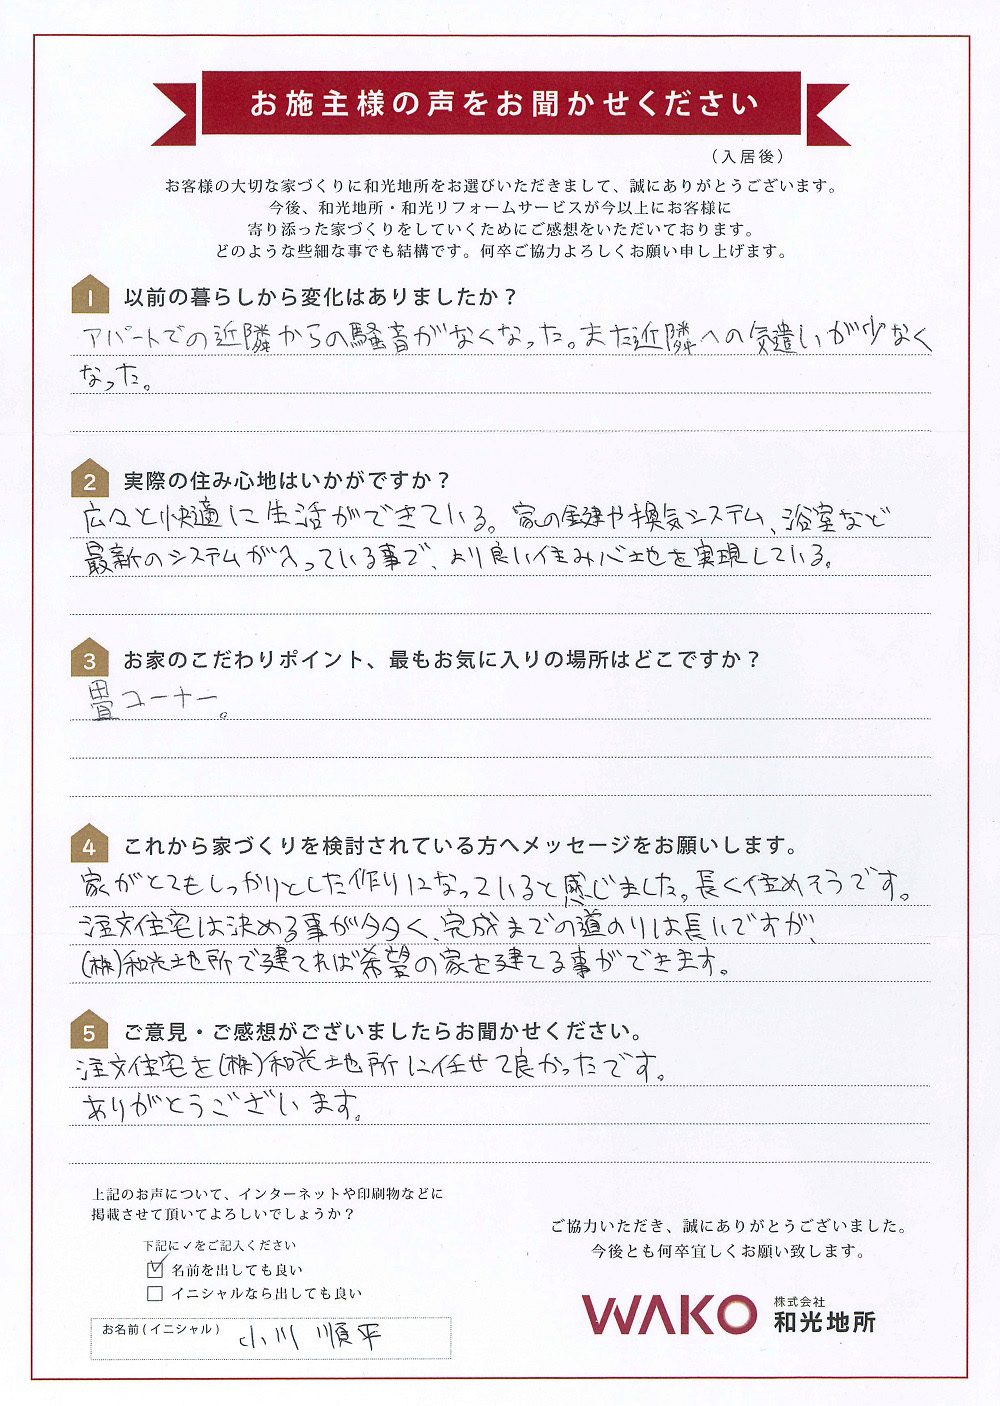 お施主様の声をお聞かせください
（入居後）
お客様の大切な家づくりに和光地所をお選びいただきまして、誠にありがとうございます。
今後、和光地所・和光リフォームサービスが今以上にお客様に
寄り添った家づくりをしていくためにご感想をいただいております。
どのような些細な事でも結構です。何卒ご協力よろしくお願い申し上げます。
1 以前の暮らしから変化はありましたか？
アパートでの近隣からの騒音がなくなった。また近隣への気遣いが少なく
なった。
2 実際の住み心地はいかがですか？
広々と快適に生活ができている。家の鍵や換気システム、浴室など
最新のシステムが入っている事で、より良い住み心地を実現している。
3 お家のこだわりポイント、最もお気に入りの場所はどこですか？
畳コーナー。
4 これから家づくりを検討されている方へメッセージをお願いします。
家がとてもしっかりとした作りになっていると感じました。長く住めそうです。
注文住宅は決める事が多く、完成までの道のりは長いですが、
(株)和光地所で建てれば希望の家を建てる事ができます。
5 ご意見・ご感想がございましたらお聞かせください。
注文住宅を(株)和光地所に任せて良かったです。
ありがとうございます。
上記のお声について、インターネットや印刷物などに
掲載させて頂いてよろしいでしょうか？
下記に✓をご記入ください
☑ 名前を出しても良い
□ イニシャルなら出しても良い
お名前(イニシャル) 小川 順平
ご協力いただき、誠にありがとうございました。
今後とも何卒宜しくお願い致します。
WAKO 株式会社 和光地所